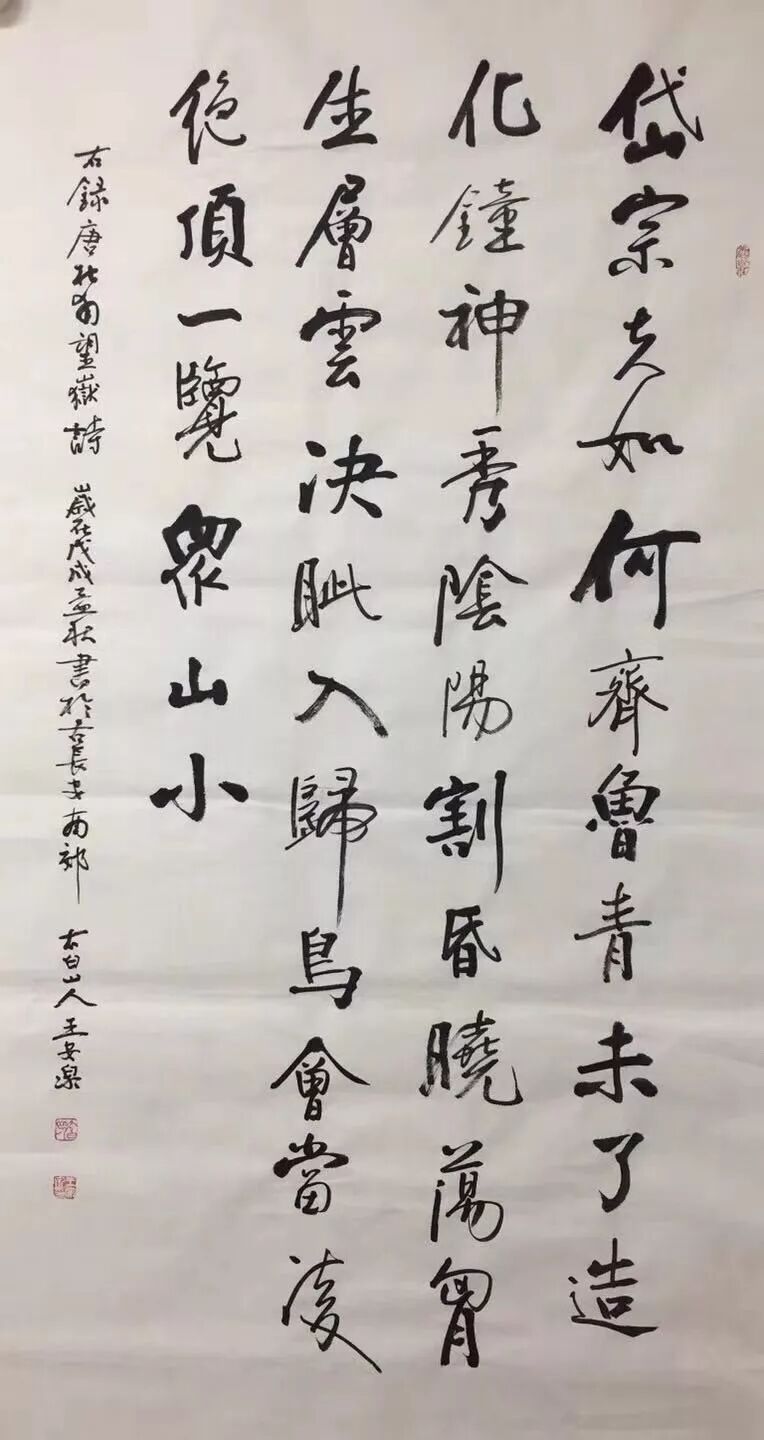 岱宗夫如何齊魯青未了造
化鐘神秀陰陽割昏曉蕩胷
生層雲決眦入歸鳥會當淩
絕頂一覽眾山小
右錄唐杜甫望嶽詩 歲在戊戌孟秋書於古長安南郊 太白山人王安